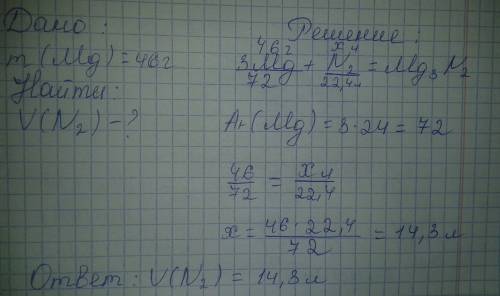 Дано:
m(Mg)=46г
Найти:
V(N₂)-?
Решение:
46г x л
3Mg + N₂ = Mg₃N₂
72 22,4л
Ar(Mg)=3·24=72
46/72 = x л/22,4
x = 46·22,4/72 = 14,3л
Ответ: V(N₂) = 14,3л